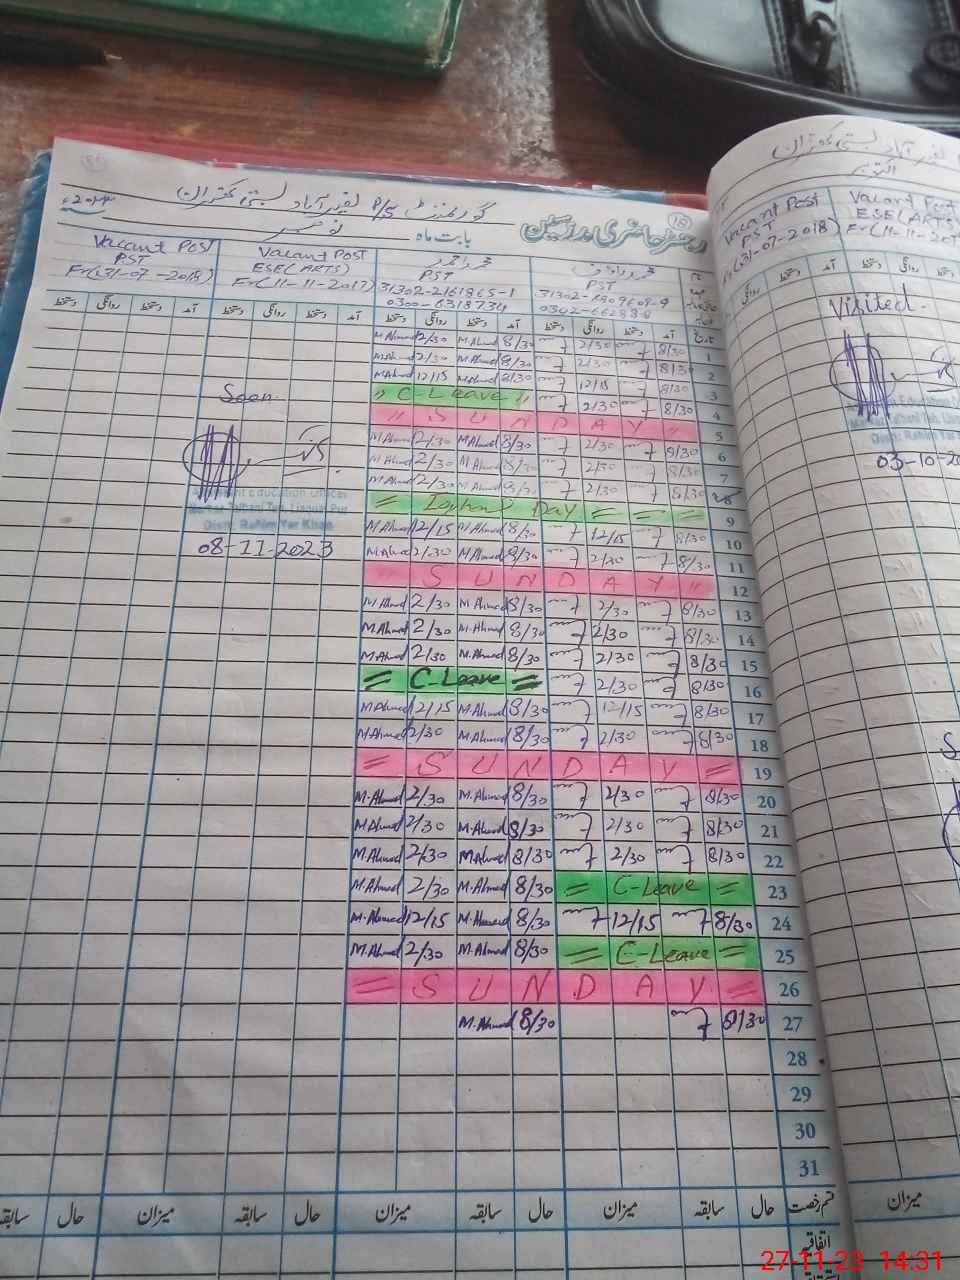 گورنمنٹ P/S فقیر آباد بستی کھتران
رجسٹر حاضری مدرسین
بابت ماہ نومبر
Vacant Post
PST
Fr(31-07-2018)
Vacant Post
ESE(ARTS)
Fr(11-11-2017)
محمد احمد
PST
31302-2161865-1
0300-6318734
PST
آمد دستخط روانگی دستخط آمد دستخط روانگی دستخط آمد دستخط روانگی دستخط آمد دستخط روانگی دستخط
M.Ahmad 2/30 M.Ahmad 8/30 2/30 8/30 1
M.Ahmad 2/30 M.Ahmad 8/30 2/30 8/30 2
M.Ahmad 12/15 M.Ahmad 8/30 12/15 8/30 3
" C-Leave " 2/30 8/30 4
" S U N D A Y " 5
M.Ahmad 2/30 M.Ahmad 8/30 2/30 8/30 6
M.Ahmad 2/30 M.Ahmad 8/30 2/30 8/30 7
M.Ahmad 2/30 M.Ahmad 8/30 2/30 8/30 8
= Iqbal Day = = = 9
M.Ahmad 12/15 M.Ahmad 8/30 12/15 8/30 10
M.Ahmad 2/30 M.Ahmad 8/30 2/30 8/30 11
" S U N D A Y " 12
M.Ahmad 2/30 M.Ahmad 8/30 2/30 8/30 13
M.Ahmad 2/30 M.Ahmad 8/30 2/30 8/30 14
M.Ahmad 2/30 M.Ahmad 8/30 2/30 8/30 15
= C-Leave = 2/30 8/30 16
M.Ahmad 12/15 M.Ahmad 8/30 12/15 8/30 17
M.Ahmad 2/30 M.Ahmad 8/30 2/30 8/30 18
= S U N D A Y = 19
M.Ahmad 2/30 M.Ahmad 8/30 2/30 8/30 20
M.Ahmad 2/30 M.Ahmad 8/30 2/30 8/30 21
M.Ahmad 2/30 M.Ahmad 8/30 2/30 8/30 22
M.Ahmad 2/30 M.Ahmad 8/30 = C-Leave = 23
M.Ahmad 12/15 M.Ahmad 8/30 12/15 8/30 24
M.Ahmad 2/30 M.Ahmad 8/30 = C-Leave = 25
= S U N D A Y = 26
M.Ahmad 8/30 8/30 27
28
29
30
31
Seen
Assistant Education Officer
Distt: Rahim Yar Khan
08-11-2023
قسم رخصت حال سابقہ میزان حال سابقہ میزان حال سابقہ میزان حال سابقہ
اتفاقیہ
Vacant Post
PST
(31-07-2018)
Vacant Post
ESE(ARTS)
Visited.
03-10-20
میزان
27-11-23 14:31